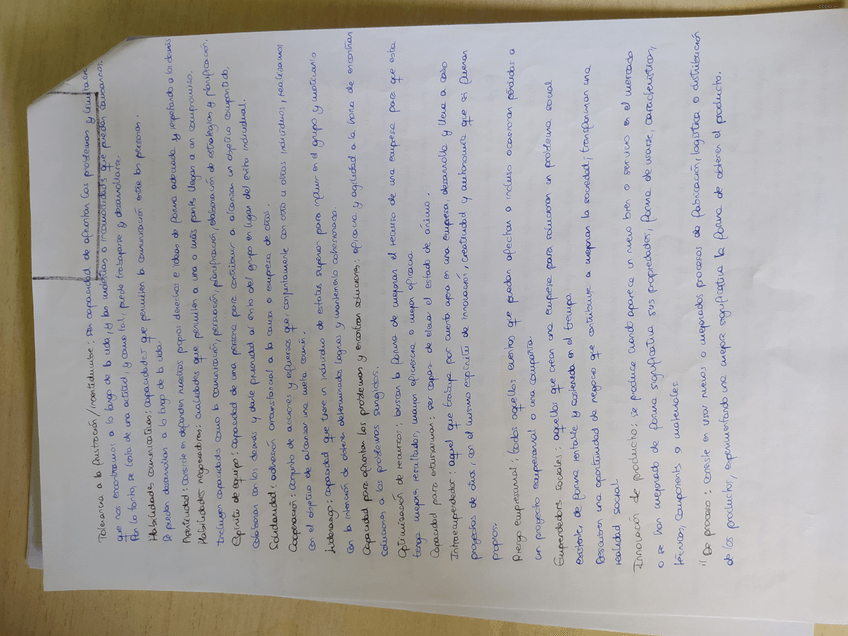 Tolerancia a la frustración/incertidumbre: Es capacidad de afrontar los problemas y limitaciones
que nos encontramos a lo largo de la vida, y las molestias o incomodidades que pueden causarnos.
Por lo tanto se trata de una actitud, y como tal, puede trabajarse y desarrollarse.
Habilidades comunicativas: capacidades que permiten la comunicación entre las personas.
Se pueden desarrollar a lo largo de la vida.
Asertividad: consiste en defender nuestros propios derechos e ideas de forma adecuada y respetando a los demás
Habilidades negociadoras: cualidades que permiten a una o más partes llegar a un compromiso.
Incluyen capacidades como la comunicación, persuasión, planificación, elaboración de estrategias y planificación.
Espíritu de equipo: capacidad de una persona para contribuir a alcanzar un objetivo compartido,
colaborar con los demás y darle prioridad al éxito del grupo en lugar del éxito individual.
Solidaridad: adhesión circunstancial a la causa o empresa de otros.
Cooperación: conjunto de acciones y esfuerzos que, conjuntamente con otro u otros individuos, realizamos
con el objetivo de alcanzar una meta común.
Liderazgo: capacidad que tiene un individuo de estatus superior para influir en el grupo y motivarlo
con la intención de obtener determinados logros y mantenerlo cohesionado.
Capacidad para afrontar los problemas y encontrar soluciones: eficacia y agilidad a la hora de encontrar
soluciones a los problemas surgidos.
Optimización de recursos: buscan la forma de mejorar el recurso de una empresa para que esta
tenga mejores resultados, mayor eficiencia o mejor eficacia.
Capacidad para entusiasmar: ser capaz de elevar el estado de ánimo.
Intraemprendedor: aquel que trabaja por cuenta ajena en una empresa, desarrolla y lleva a cabo
proyectos de ella, con el mismo espíritu de innovación, creatividad y autonomía que si fueran
propios.
Riesgo empresarial: todos aquellos eventos que puedan afectar o incluso ocasionar pérdidas a
un proyecto empresarial o una compañía.
Emprendedores sociales: aquellos que crean una empresa para solucionar un problema social
existente, de forma rentable y sostenida en el tiempo.
Descubren una oportunidad de negocio que contribuye a mejorar la sociedad, transforman una
realidad social.
Innovación de producto: se produce cuando aparece un nuevo bien o servicio en el mercado
o se han mejorado de forma significativa sus propiedades, forma de usarse, características,
técnicas, componentes o materiales.
" De proceso: consiste en usar nuevos o mejorados procesos de fabricación, logística o distribución
de los productos, experimentando una mejora significativa la forma de obtener el producto.